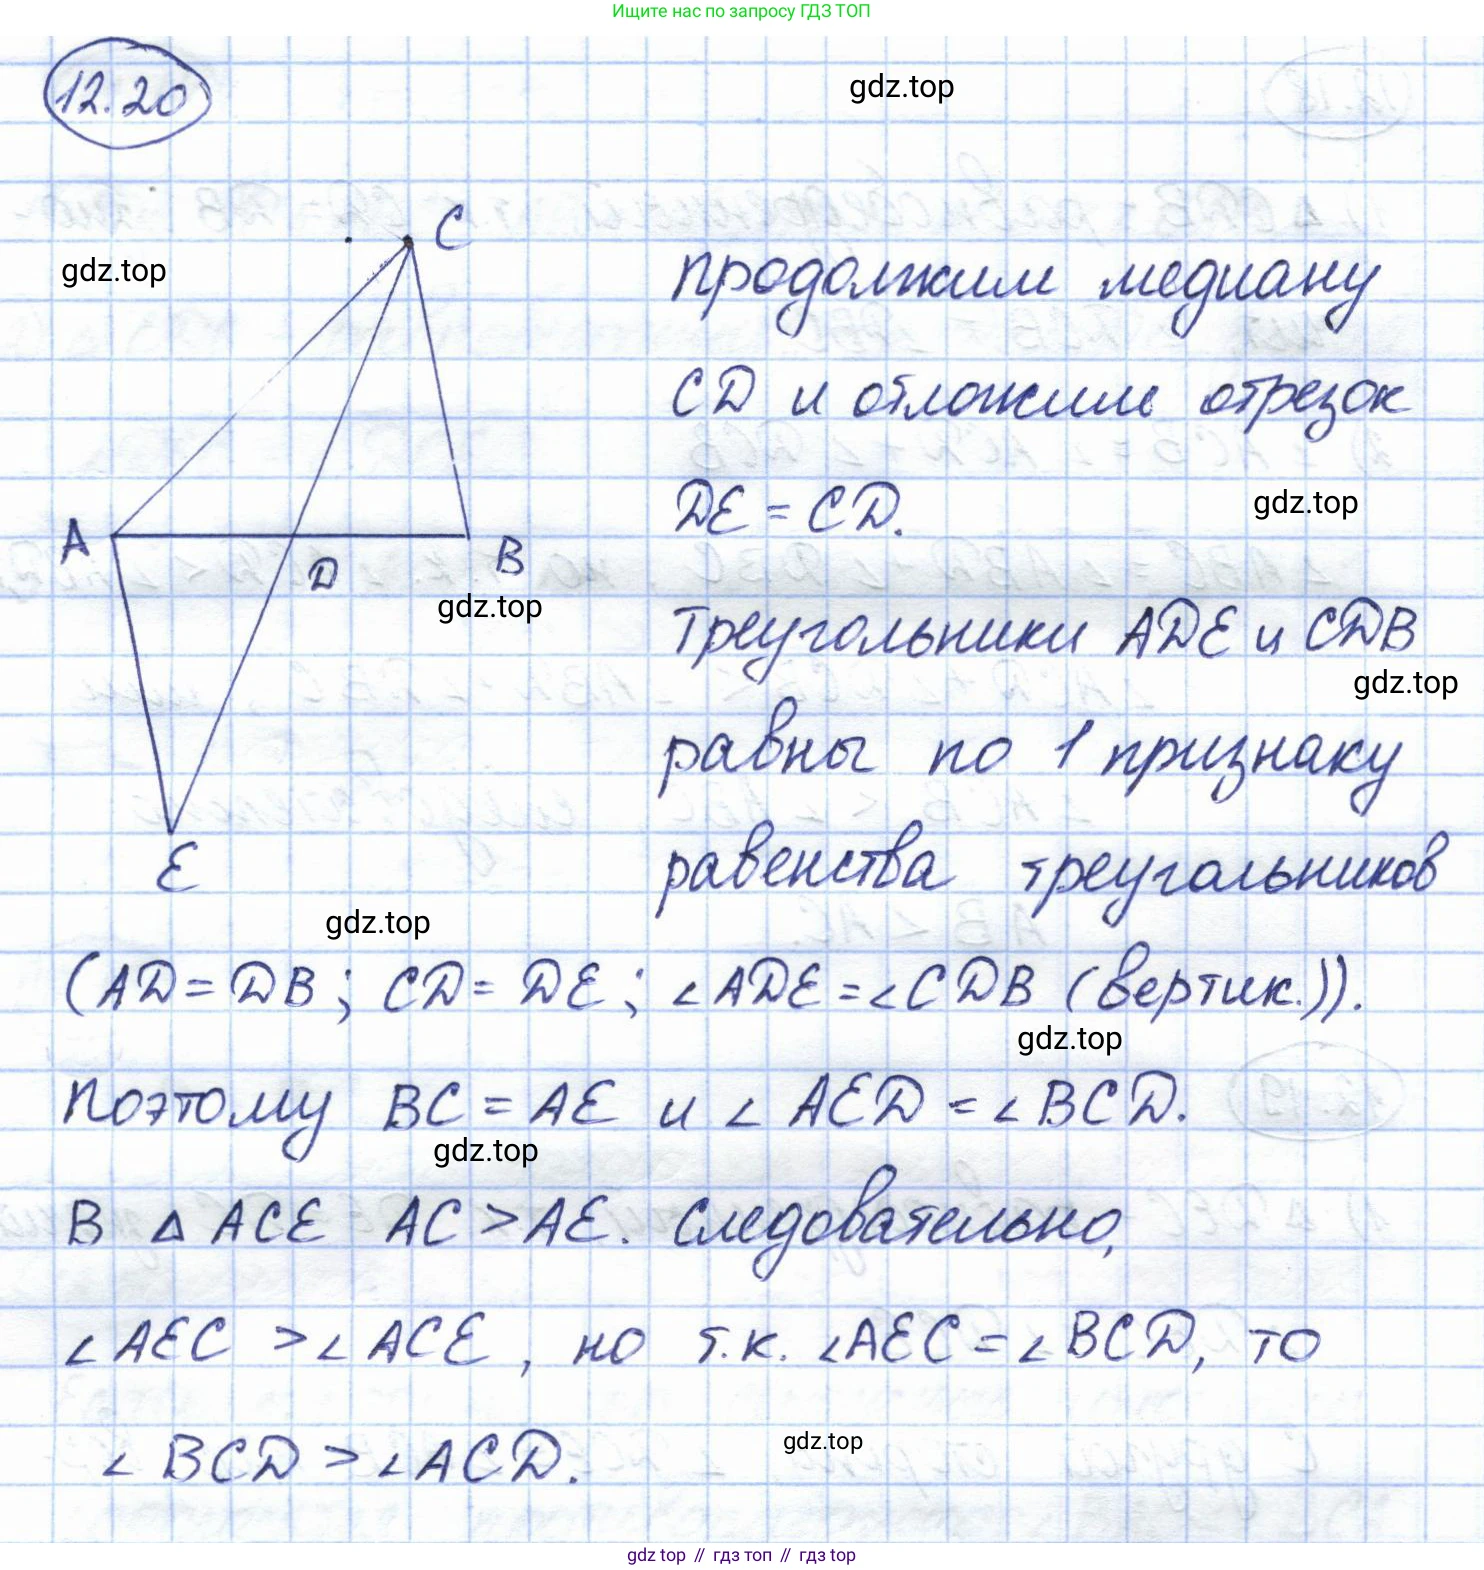 Ищите нас по запросу ГДЗ ТОП
12.20
gdz.top
C
gdz.top
продолжим медиану
CD и отложим отрезок
DE = CD.
gdz.top
A
D
B
gdz.top
Треугольники ADE и CDB
gdz.top
равны по 1 признаку
E
равенства треугольников
gdz.top
(AD = DB; CD = DE; ∠ADE = ∠CDB (вертик.)).
gdz.top
Поэтому BC = AE и ∠AED = ∠BCD.
gdz.top
В △ACE AC > AE. Следовательно,
∠AEC > ∠ACE, но т.к. ∠AEC = ∠BCD, то
∠BCD > ∠ACD.
gdz.top
gdz top // гдз топ // гдз top